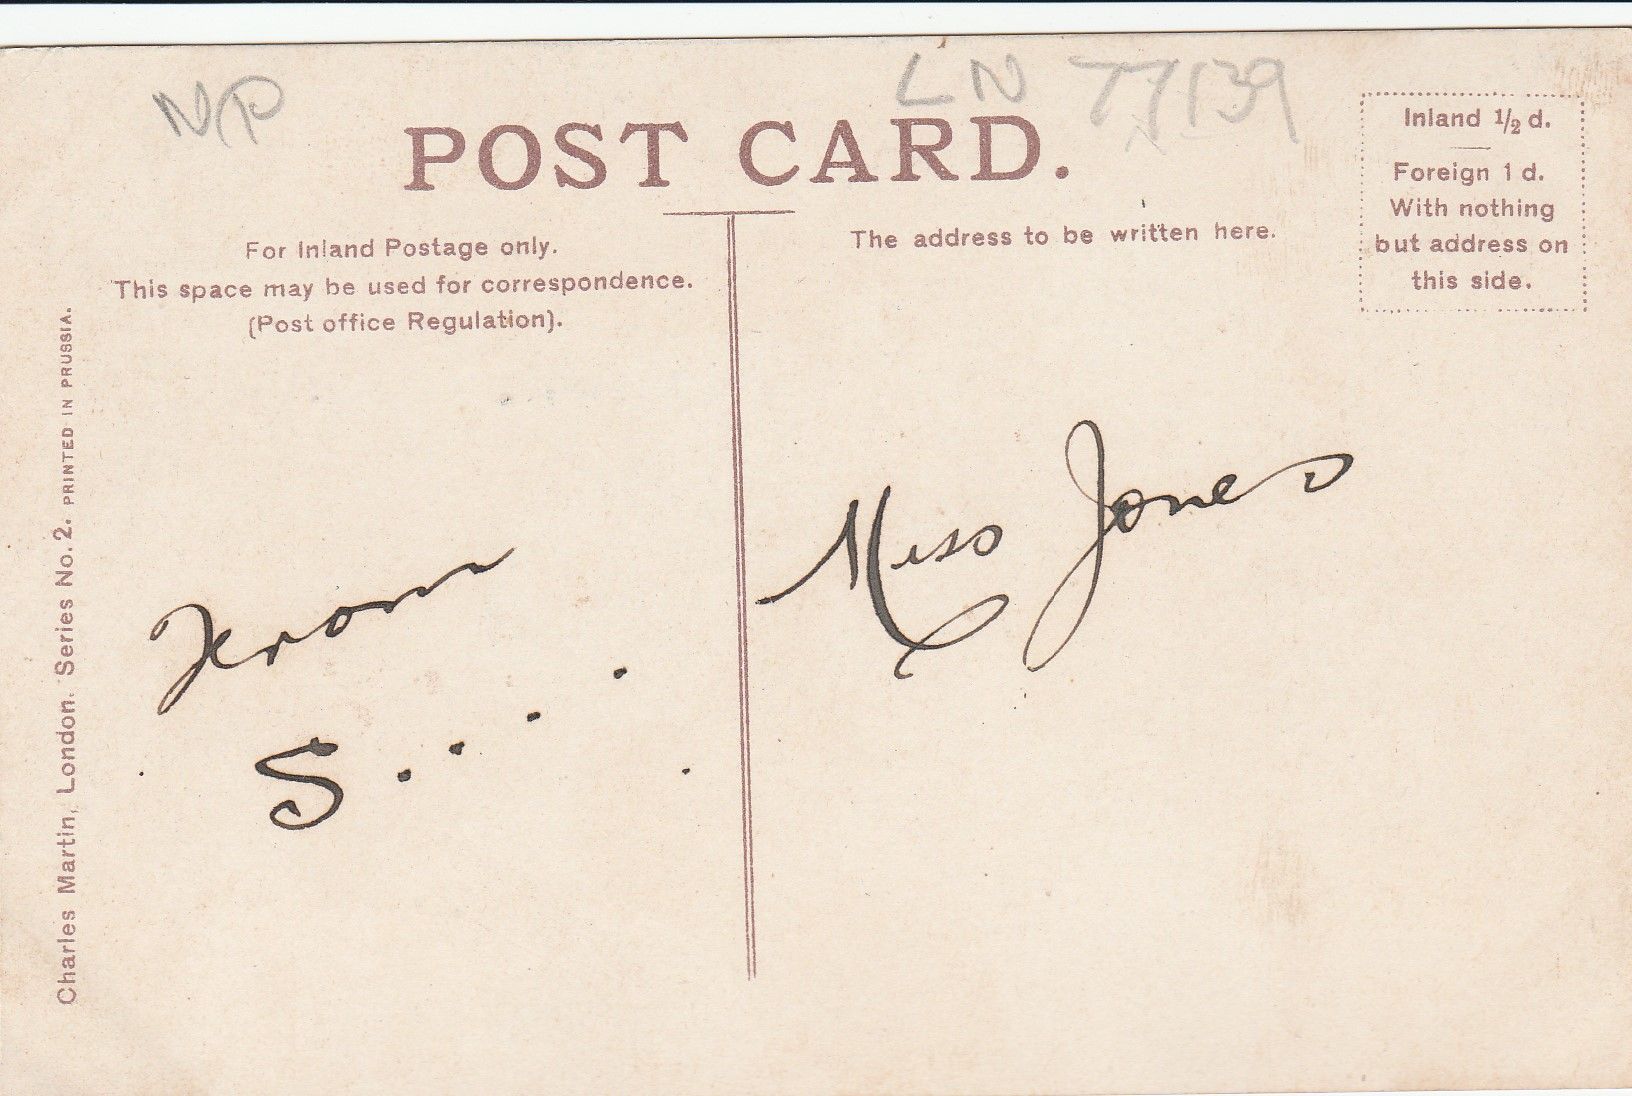 NP
LN 77139
POST CARD.
Inland ½ d.
Foreign 1 d.
With nothing
but address on
this side.
For Inland Postage only.
This space may be used for correspondence.
(Post office Regulation).
The address to be written here.
Charles Martin, London. Series No. 2. PRINTED IN PRUSSIA.
S.....
Miss Jones